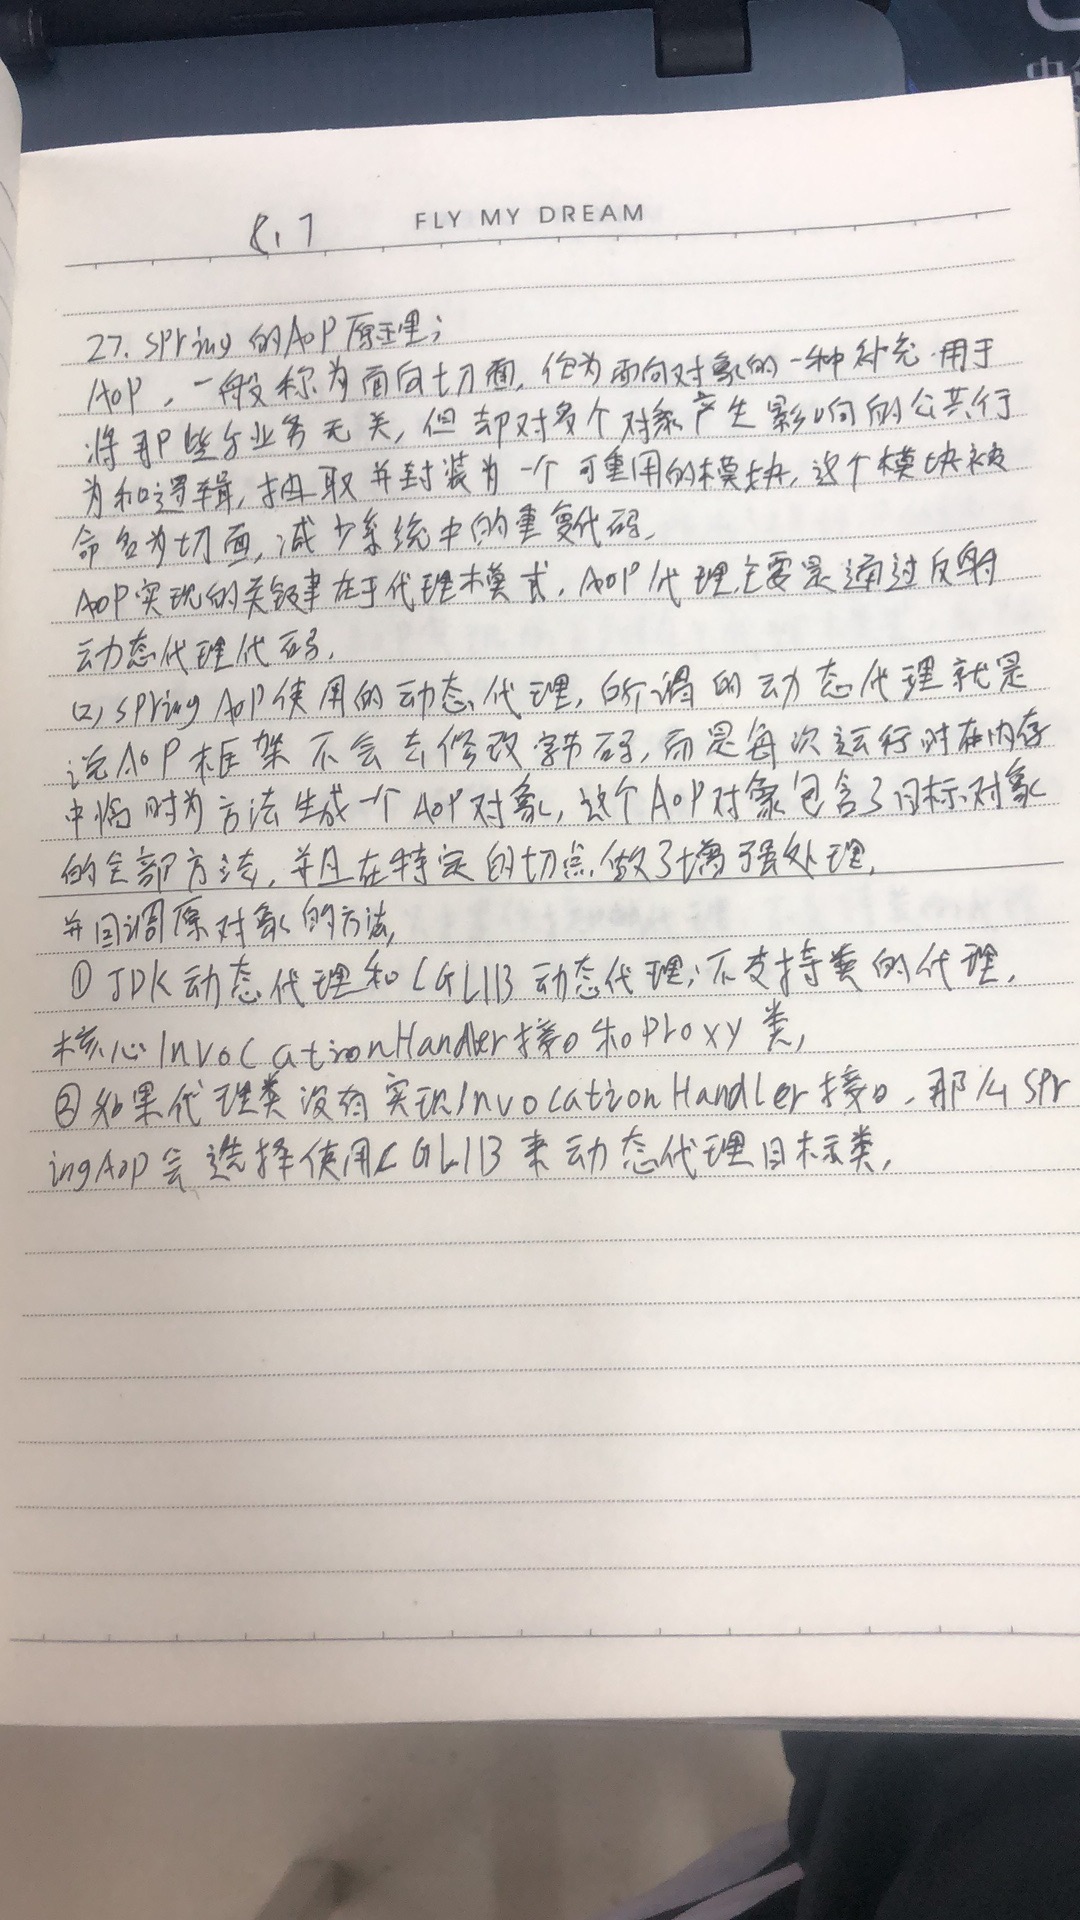 8.7 FLY MY DREAM
27. Spring的AOP原理：
AOP，一般称为面向切面，作为面向对象的一种补充，用于
将那些与业务无关，但却对多个对象产生影响的公共行
为和逻辑，抽取并封装为一个可重用的模块，这个模块被
命名为切面，减少系统中的重复代码，
AOP实现的关键在于代理模式，AOP代理主要是通过反射
动态代理代码，
(2) Spring AOP使用的动态代理，所谓的动态代理就是
说AOP框架不会去修改字节码，而是每次运行时在内存
中临时为方法生成一个AOP对象，这个AOP对象包含了目标对象
的全部方法，并且在特定的切点做了增强处理，
并回调原对象的方法，
① JDK动态代理和CGLIB动态代理：不支持类的代理，
核心InvocationHandler接口和Proxy类，
② 如果代理类没有实现InvocationHandler接口，那么Spr
ingAop会选择使用CGLIB来动态代理目标类，